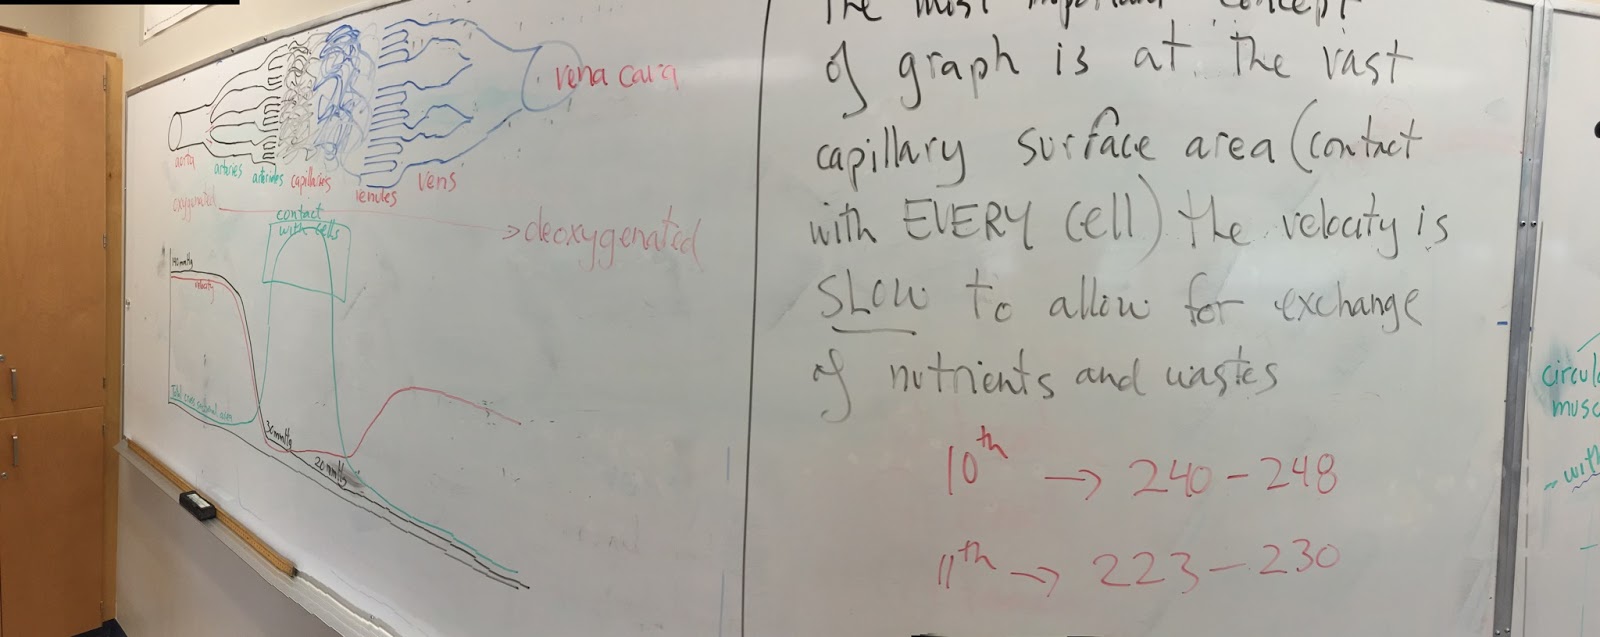 vena cava
aorta
arteries
arterioles
capillaries
venules
vens
oxygenated
deoxygenated
contact
with cells
140mmHg
velocity
Total cross sectional area
30mmHg
20mmHg
The most important concept
of graph is at the vast
capillary surface area (contact
with EVERY cell) the velocity is
SLOW to allow for exchange
of nutrients and wastes
10th → 240 - 248
11th → 223 - 230
with